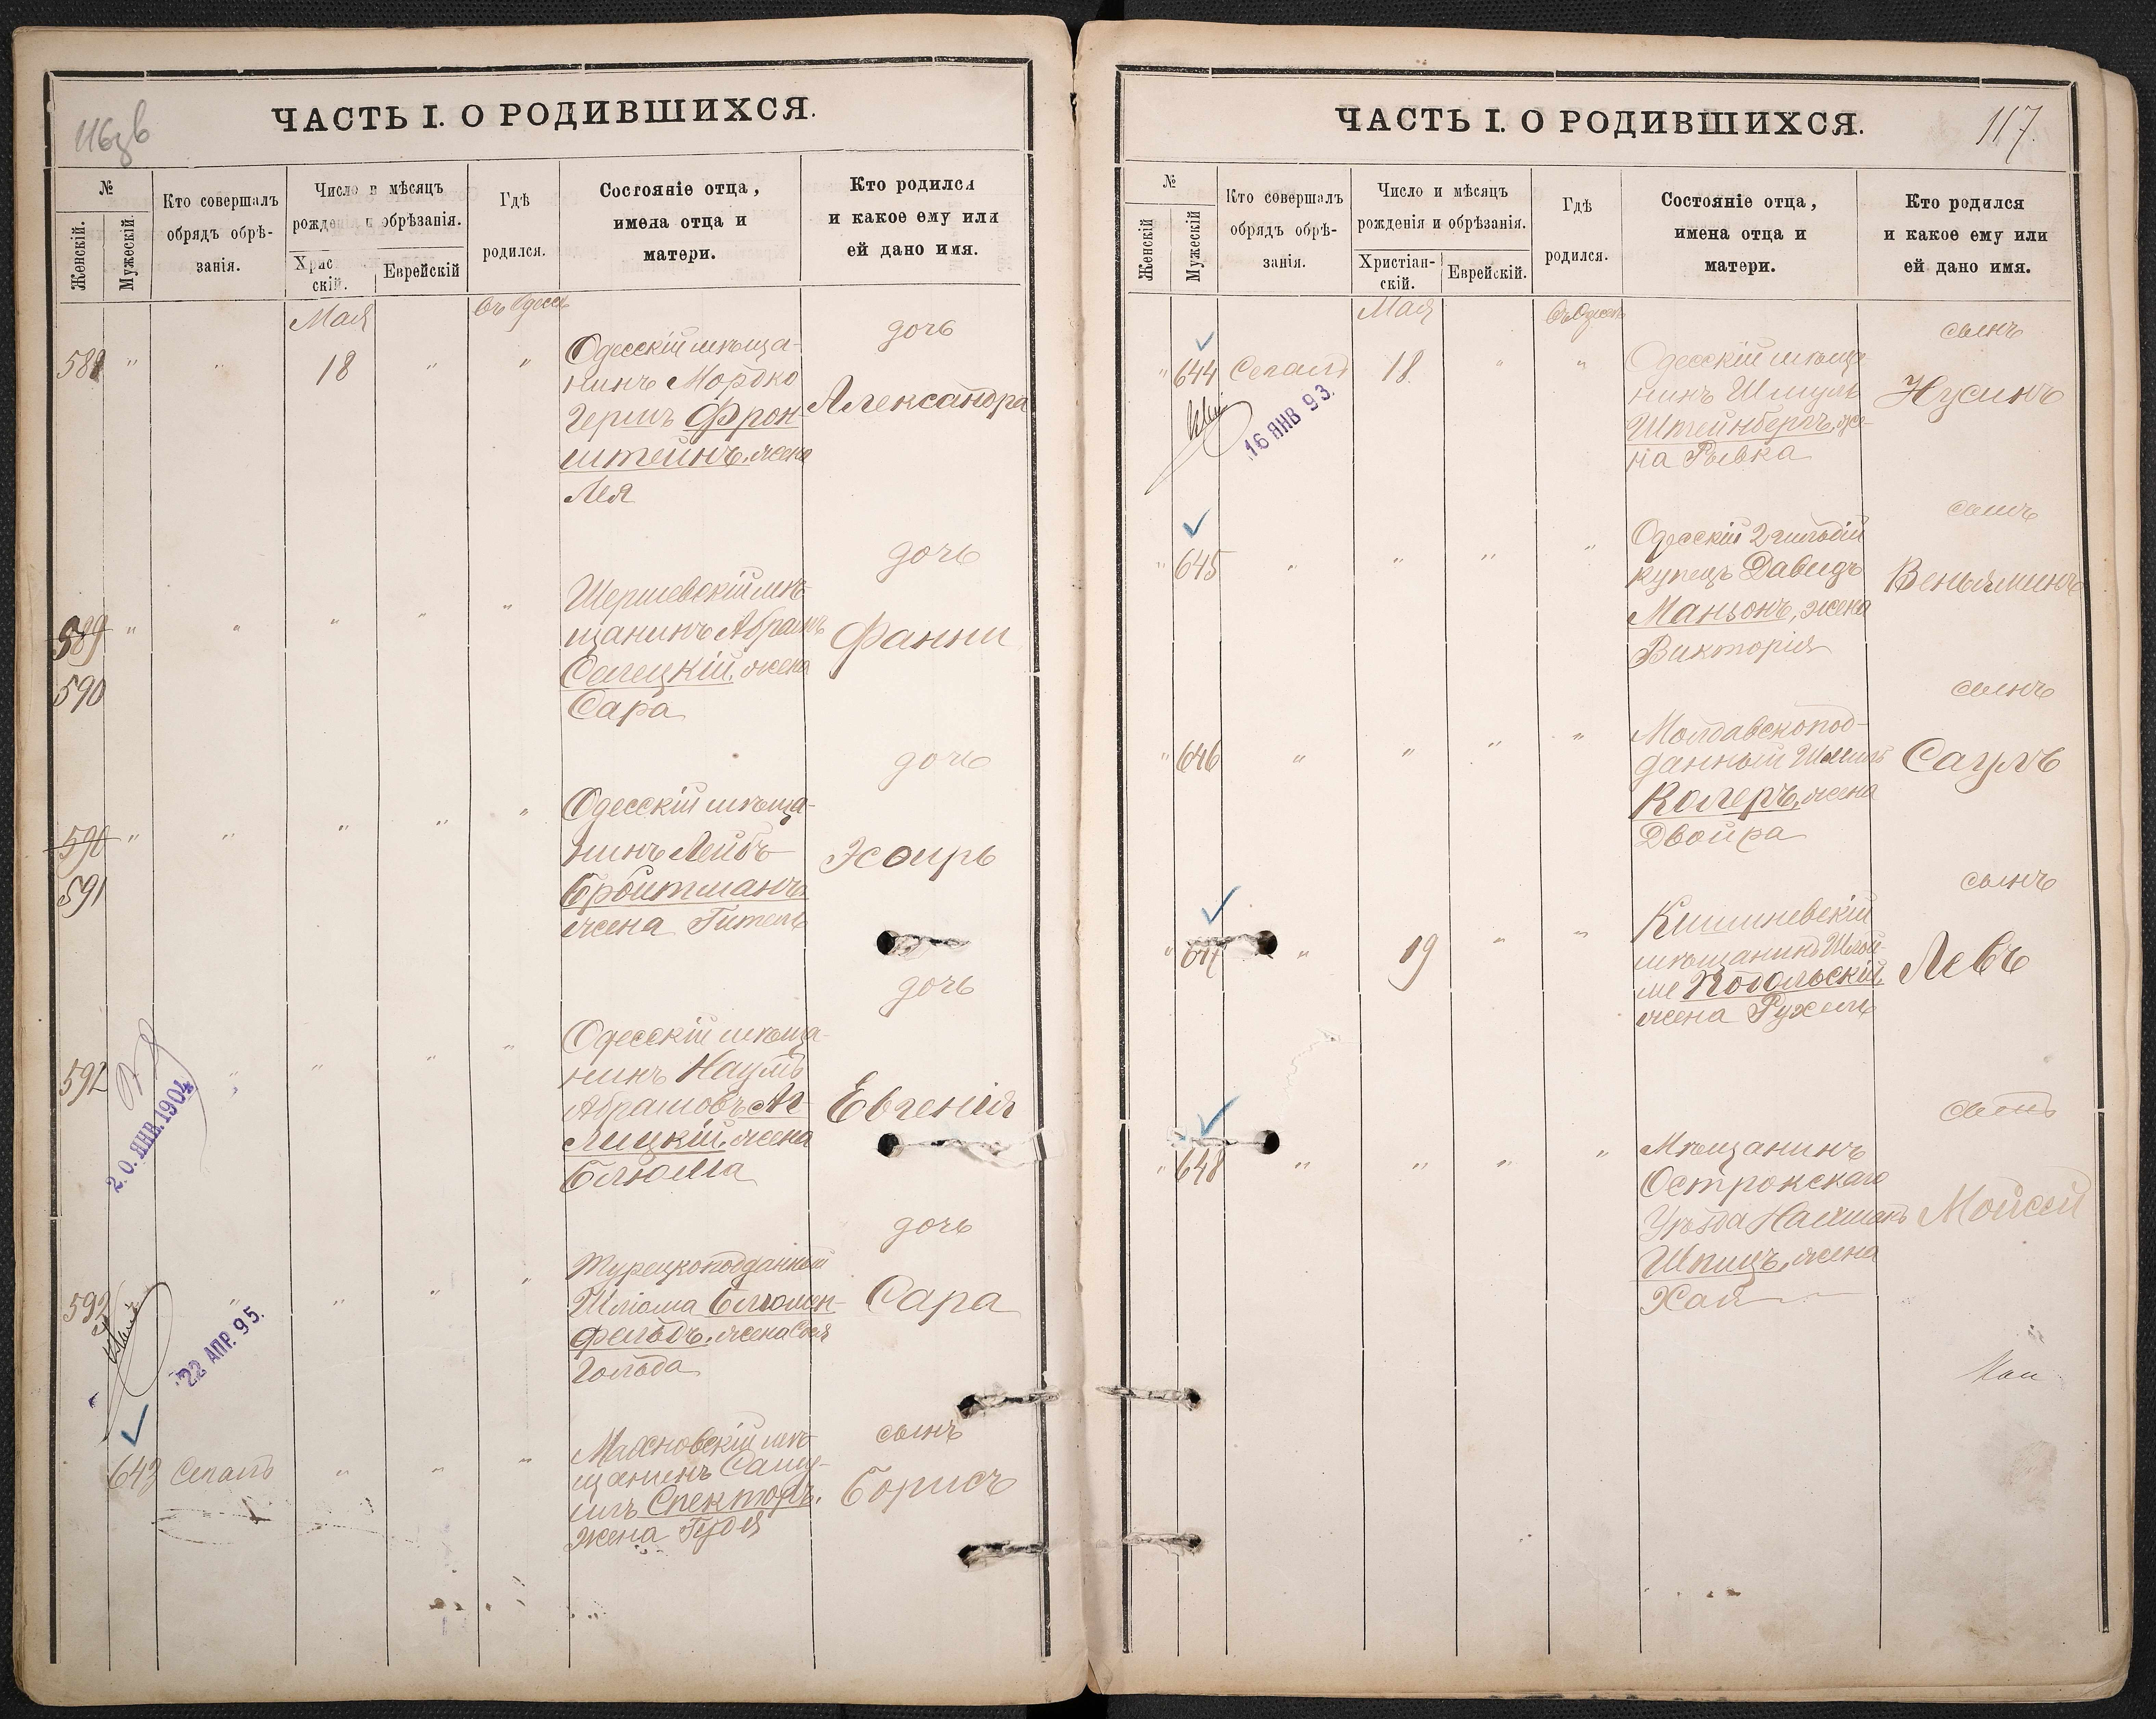 116 об
ЧАСТЬ I. О РОДИВШИХСЯ.
№
Женскій.
Мужескій.
Кто совершалъ
обрядъ обрѣ-
занія.
Число и мѣсяцъ
рожденія и обрѣзанія.
Христіан-
скій.
Еврейскій
Гдѣ
родился.
Состояніе отца,
имена отца и
матери.
Кто родился
и какое ему или
ей дано имя.
Мая
въ Одессѣ
588 " " 18 " "
Одесскій мѣща-
нинъ Мордко
Гершъ Фрон-
штейнъ, жена
Лея
дочь
Александра
589 " " " " "
590
Шершевскій мѣ-
щанинъ Абрамъ
Селецкій, жена
Сара
дочь
Фанни
590 " " " " "
591
Одесскій мѣща-
нинъ Лейбъ
Бройтманъ
жена Гитель
дочь
Эсѳирь
592 " " " "
20. ЯНВ. 1904
Одесскій мѣща-
нинъ Наумъ
Абрамовъ
жена
Блюма
дочь
Евгенія
593 " " " "
22 АПР. 95.
Турецкоподданный
Шлiома Блюмен-
фельдъ, жена Сося
Голда
дочь
Сара
643 Сепатъ " " "
Махновскій мѣ-
щанинъ Саму-
илъ Спекторъ,
жена Гудя
сынъ
Борисъ
ЧАСТЬ I. О РОДИВШИХСЯ.
117.
№
Женскій
Мужескій
Кто совершалъ
обрядъ обрѣ-
занія.
Число и мѣсяцъ
рожденія и обрѣзанія.
Христіан-
скій.
Еврейскій.
Гдѣ
родился.
Состояніе отца,
имена отца и
матери.
Кто родился
и какое ему или
ей дано имя.
Мая
въ Одессѣ
" 644 Сепатъ 18 " "
16 ЯНВ 93.
Одесскій мѣща-
нинъ Шмуль
Штейнбергъ, же-
на Рывка
сынъ
Нусинъ
" 645 " " " "
Одесскій 2 гильдіи
купецъ Давидъ
Маньонъ, жена
Викторія
сынъ
Веньяминъ
" 646 " " " "
Молдавскопод-
данный Шмиль
Колеръ, жена
Двойра
сынъ
Саулъ
" 647 " 19 " "
Кишиневскій
мѣщанинъ Шлой-
ме Подольскій,
жена Рухель
сынъ
Левъ
" 648 " " " "
Мѣщанинъ
Острожскаго
Уѣзда Нахманъ
Шпицъ, жена
Хая
сынъ
Мойсей